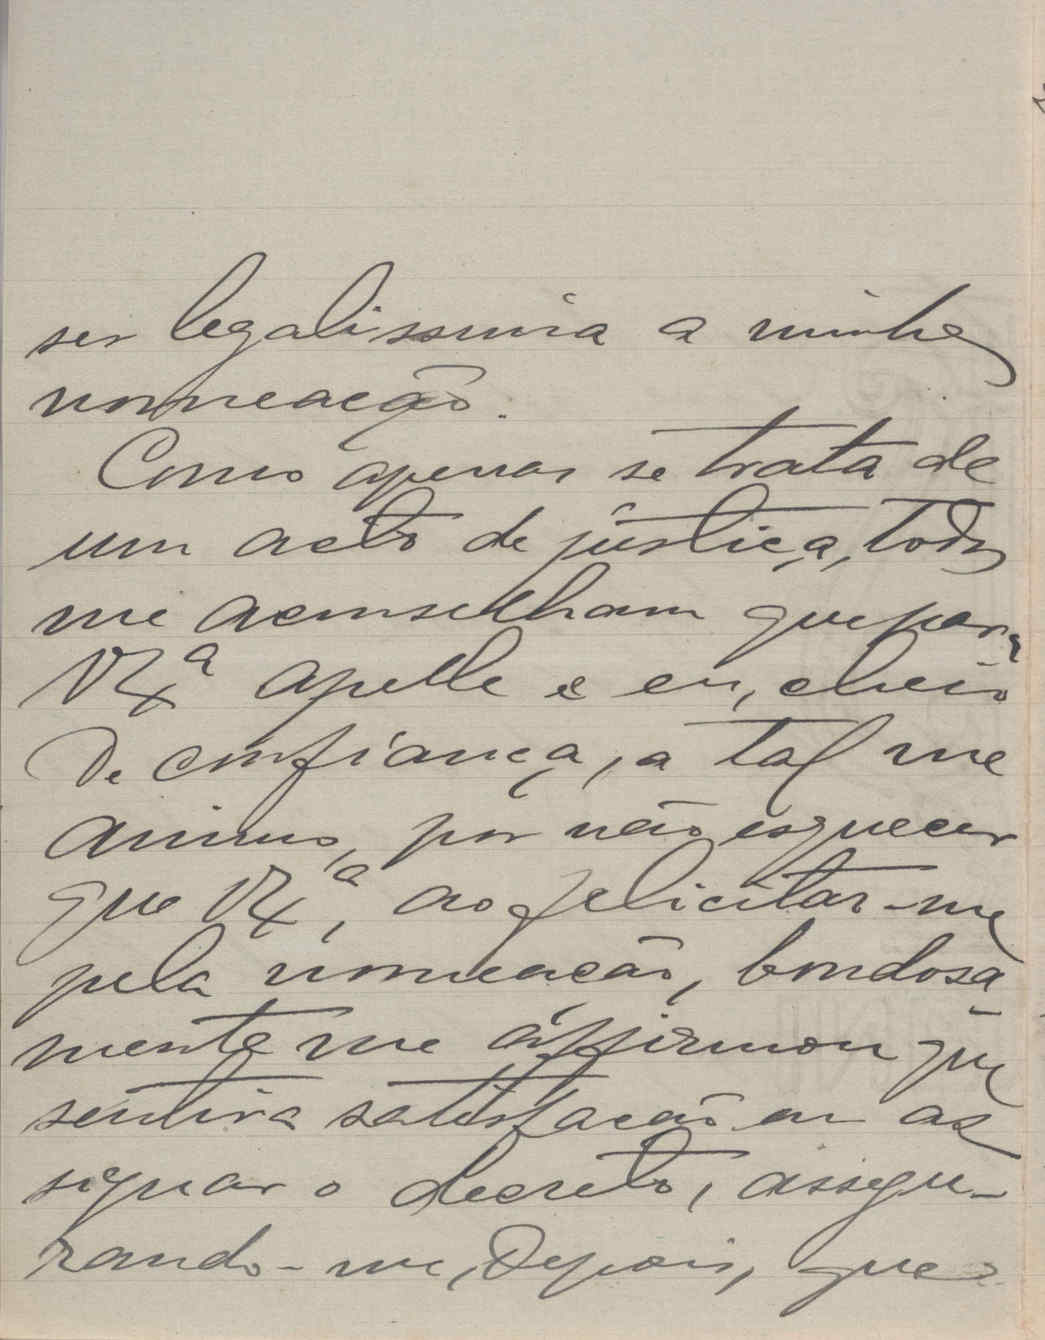 ser legalissima a minha
nomeação.
Como apenas se trata de
um acto de justiça, todos
me aconselham que para
V Ex.ª apelle e eu, cheio
de confiança, a tal me
animo, por não esquecer
que V Ex.ª, ao felicitar-me
pela nomeação, bondosa-
mente me affirmou que
sentira satisfação em as-
signar o decreto, assegu-
rando-me, depois, que